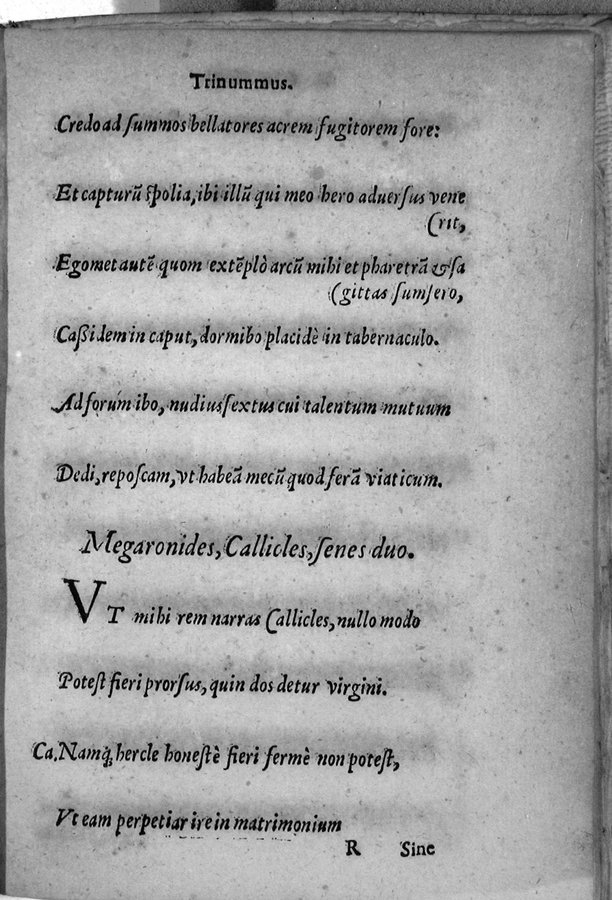 Trinummus.
Credo ad ſummos bellatores acrem fugitorem fore:
Et capturũ ſpolia, ibi illũ qui meo hero aduerſus vene
(rit,
Egomet autẽ quom extẽplò arcũ mihi et pharetrã & ſa
(gittas ſumſero,
Caßidem in caput, dormibo placidè in tabernaculo.
Ad forum ibo, nudiusſextus cui talentum mutuum
Dedi, repoſcam, vt habeã mecũ quod ferã viaticum.
Megaronides, Callicles, ſenes duo.
VT mihi rem narras Callicles, nullo modo
Poteſt fieri prorſus, quin dos detur virgini.
Ca. Namq́; hercle honeſtè fieri fermè non poteſt,
Vt eam perpetiar ire in matrimonium
R Sine